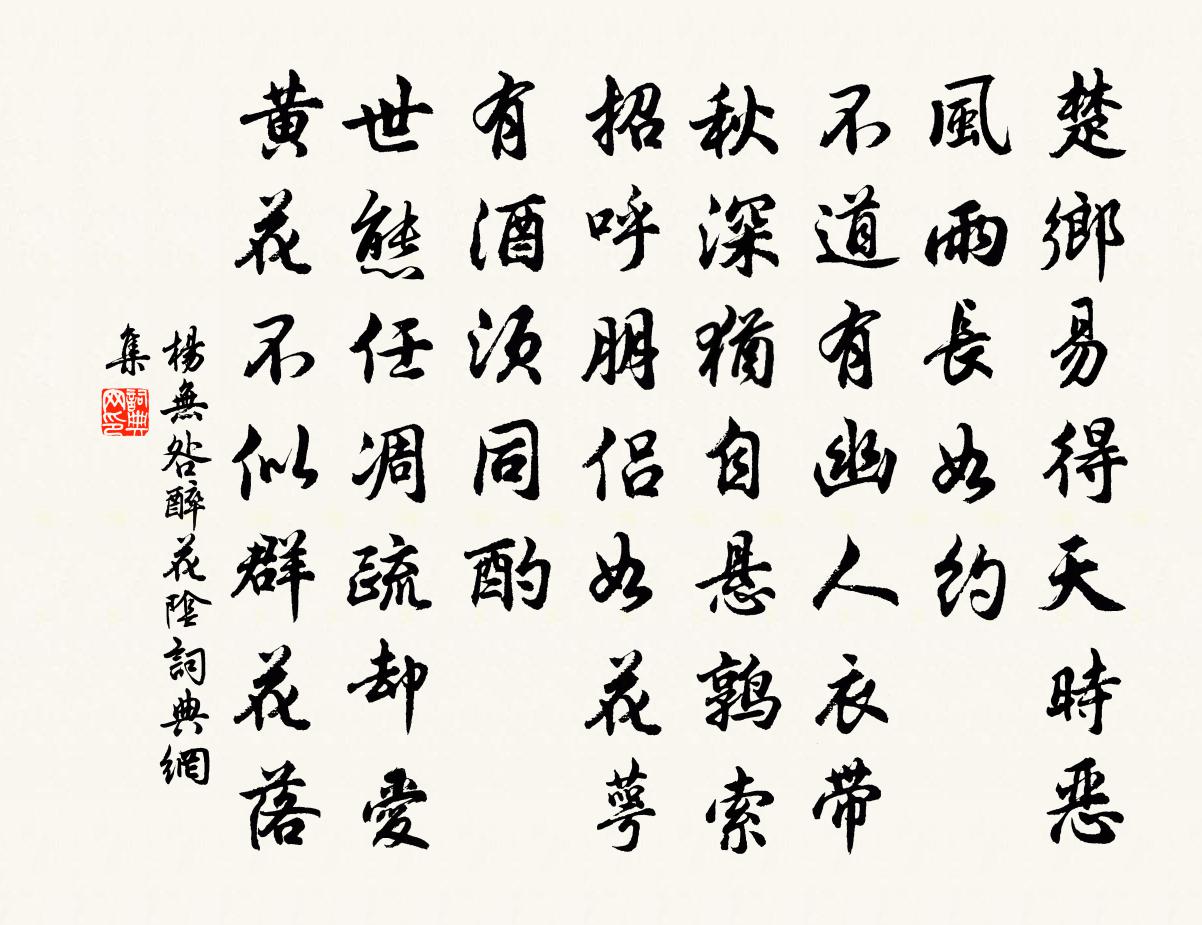 楚鄉易得天時惡
風雨長如約
不道有幽人衣帶
秋深猶自懸鶉索
招呼朋侶如花萼
有酒須同酌
世態任凋疏却愛
黃花不似群花落
楊無咎醉花陰詞典網
集
詞典
网印